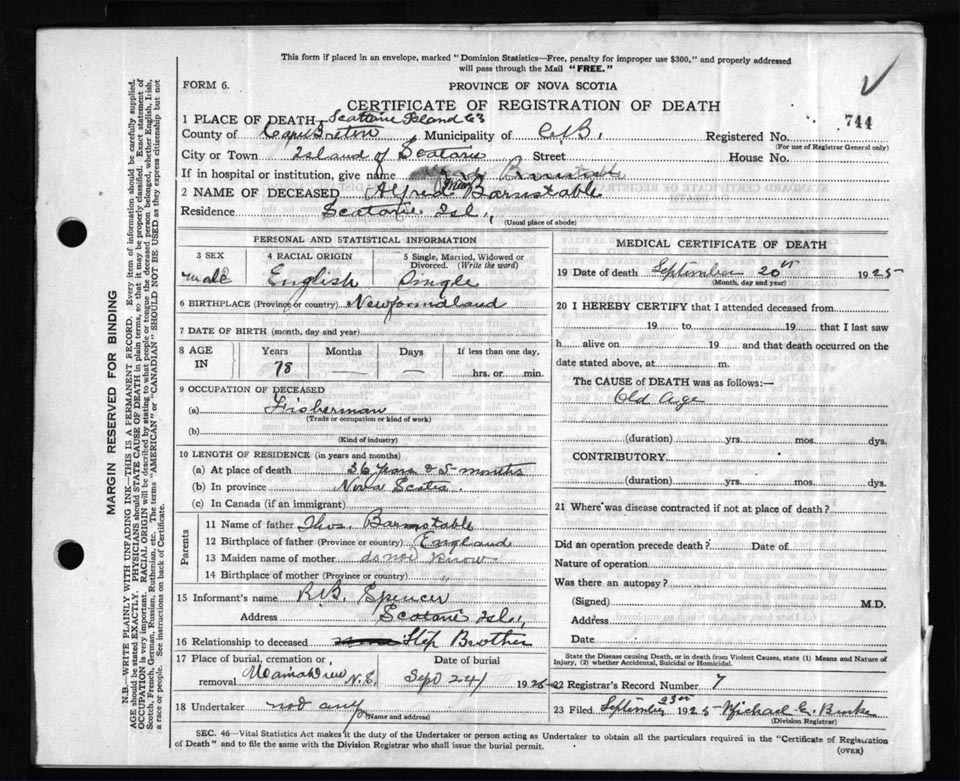 This form if placed in an envelope, marked "Dominion Statistics—Free, penalty for improper use $300," and properly addressed
will pass through the Mail "FREE."
FORM 6.
PROVINCE OF NOVA SCOTIA
CERTIFICATE OF REGISTRATION OF DEATH
744
1 PLACE OF DEATH Scattarie Island
County of Cape Breton Municipality of C.B. Registered No.
(For use of Registrar General only)
City or Town Island of Scotarie Street House No.
If in hospital or institution, give name
2 NAME OF DECEASED Alfred Barnstable
Residence Scotarie Isl.,
(Usual place of abode)
PERSONAL AND STATISTICAL INFORMATION
3 SEX
male
4 RACIAL ORIGIN
English
5 Single, Married, Widowed or
Divorced. (Write the word)
Single
6 BIRTHPLACE (Province or country) Newfoundland
7 DATE OF BIRTH (month, day and year)
8 AGE IN
Years Months Days If less than one day,
78 — — hrs. or min.
9 OCCUPATION OF DECEASED
(a) Fisherman
(Trade or occupation or kind of work)
(b)
(Kind of industry)
10 LENGTH OF RESIDENCE (in years and months)
(a) At place of death 36 years & 5 months
(b) In province Nova Scotia
(c) In Canada (if an immigrant)
Parents
11 Name of father Thos. Barnstable
12 Birthplace of father (Province or country) England
13 Maiden name of mother do not know
14 Birthplace of mother (Province or country) "
15 Informant's name R.B. Spencer
Address Scotarie Isl.,
16 Relationship to deceased Step Brother
17 Place of burial, cremation or removal Mamadieu N.S.
Date of burial Sept 24 1925
18 Undertaker not any
(Name and address)
MEDICAL CERTIFICATE OF DEATH
19 Date of death September 20th 1925
(Month, day and year)
20 I HEREBY CERTIFY that I attended deceased from
19 to 19 that I last saw
h alive on 19 and that death occurred on the
date stated above, at m.
The CAUSE of DEATH was as follows:—
Old Age
(duration) yrs. mos. dys.
CONTRIBUTORY
(duration) yrs. mos. dys.
21 Where was disease contracted if not at place of death?
Did an operation precede death? Date of
Nature of operation
Was there an autopsy?
(Signed) M.D.
Address
Date
State the Disease causing Death, or in death from Violent Causes, state (1) Means and Nature of
Injury, (2) whether Accidental, Suicidal or Homicidal.
22 Registrar's Record Number 7
23 Filed September 23rd 1925 Michael C. Burke
(Division Registrar)
SEC. 46—Vital Statistics Act makes it the duty of the Undertaker or person acting as Undertaker to obtain all the particulars required in the "Certificate of Registration
of Death" and to file the same with the Division Registrar who shall issue the burial permit.
(OVER)
MARGIN RESERVED FOR BINDING
N.B.—WRITE PLAINLY WITH UNFADING INK—THIS IS A PERMANENT RECORD. Every item of information should be carefully supplied.
AGE should be stated EXACTLY. PHYSICIANS should STATE CAUSE OF DEATH in plain terms, so that it may be properly classified. Exact statement of
OCCUPATION is very important. RACIAL ORIGIN will be described by stating to what people or tongue the deceased person belonged, whether English, Irish,
Scotch, French, German, Russian, Ruthenian, etc. The terms "AMERICAN" or "CANADIAN" SHOULD NOT BE USED as they express citizenship but not
a race or people. See instructions on back of Certificate.